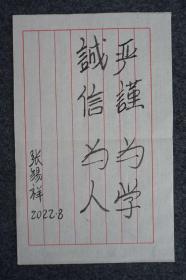 严謹为学
誠信为人
张錫祥
2022·8